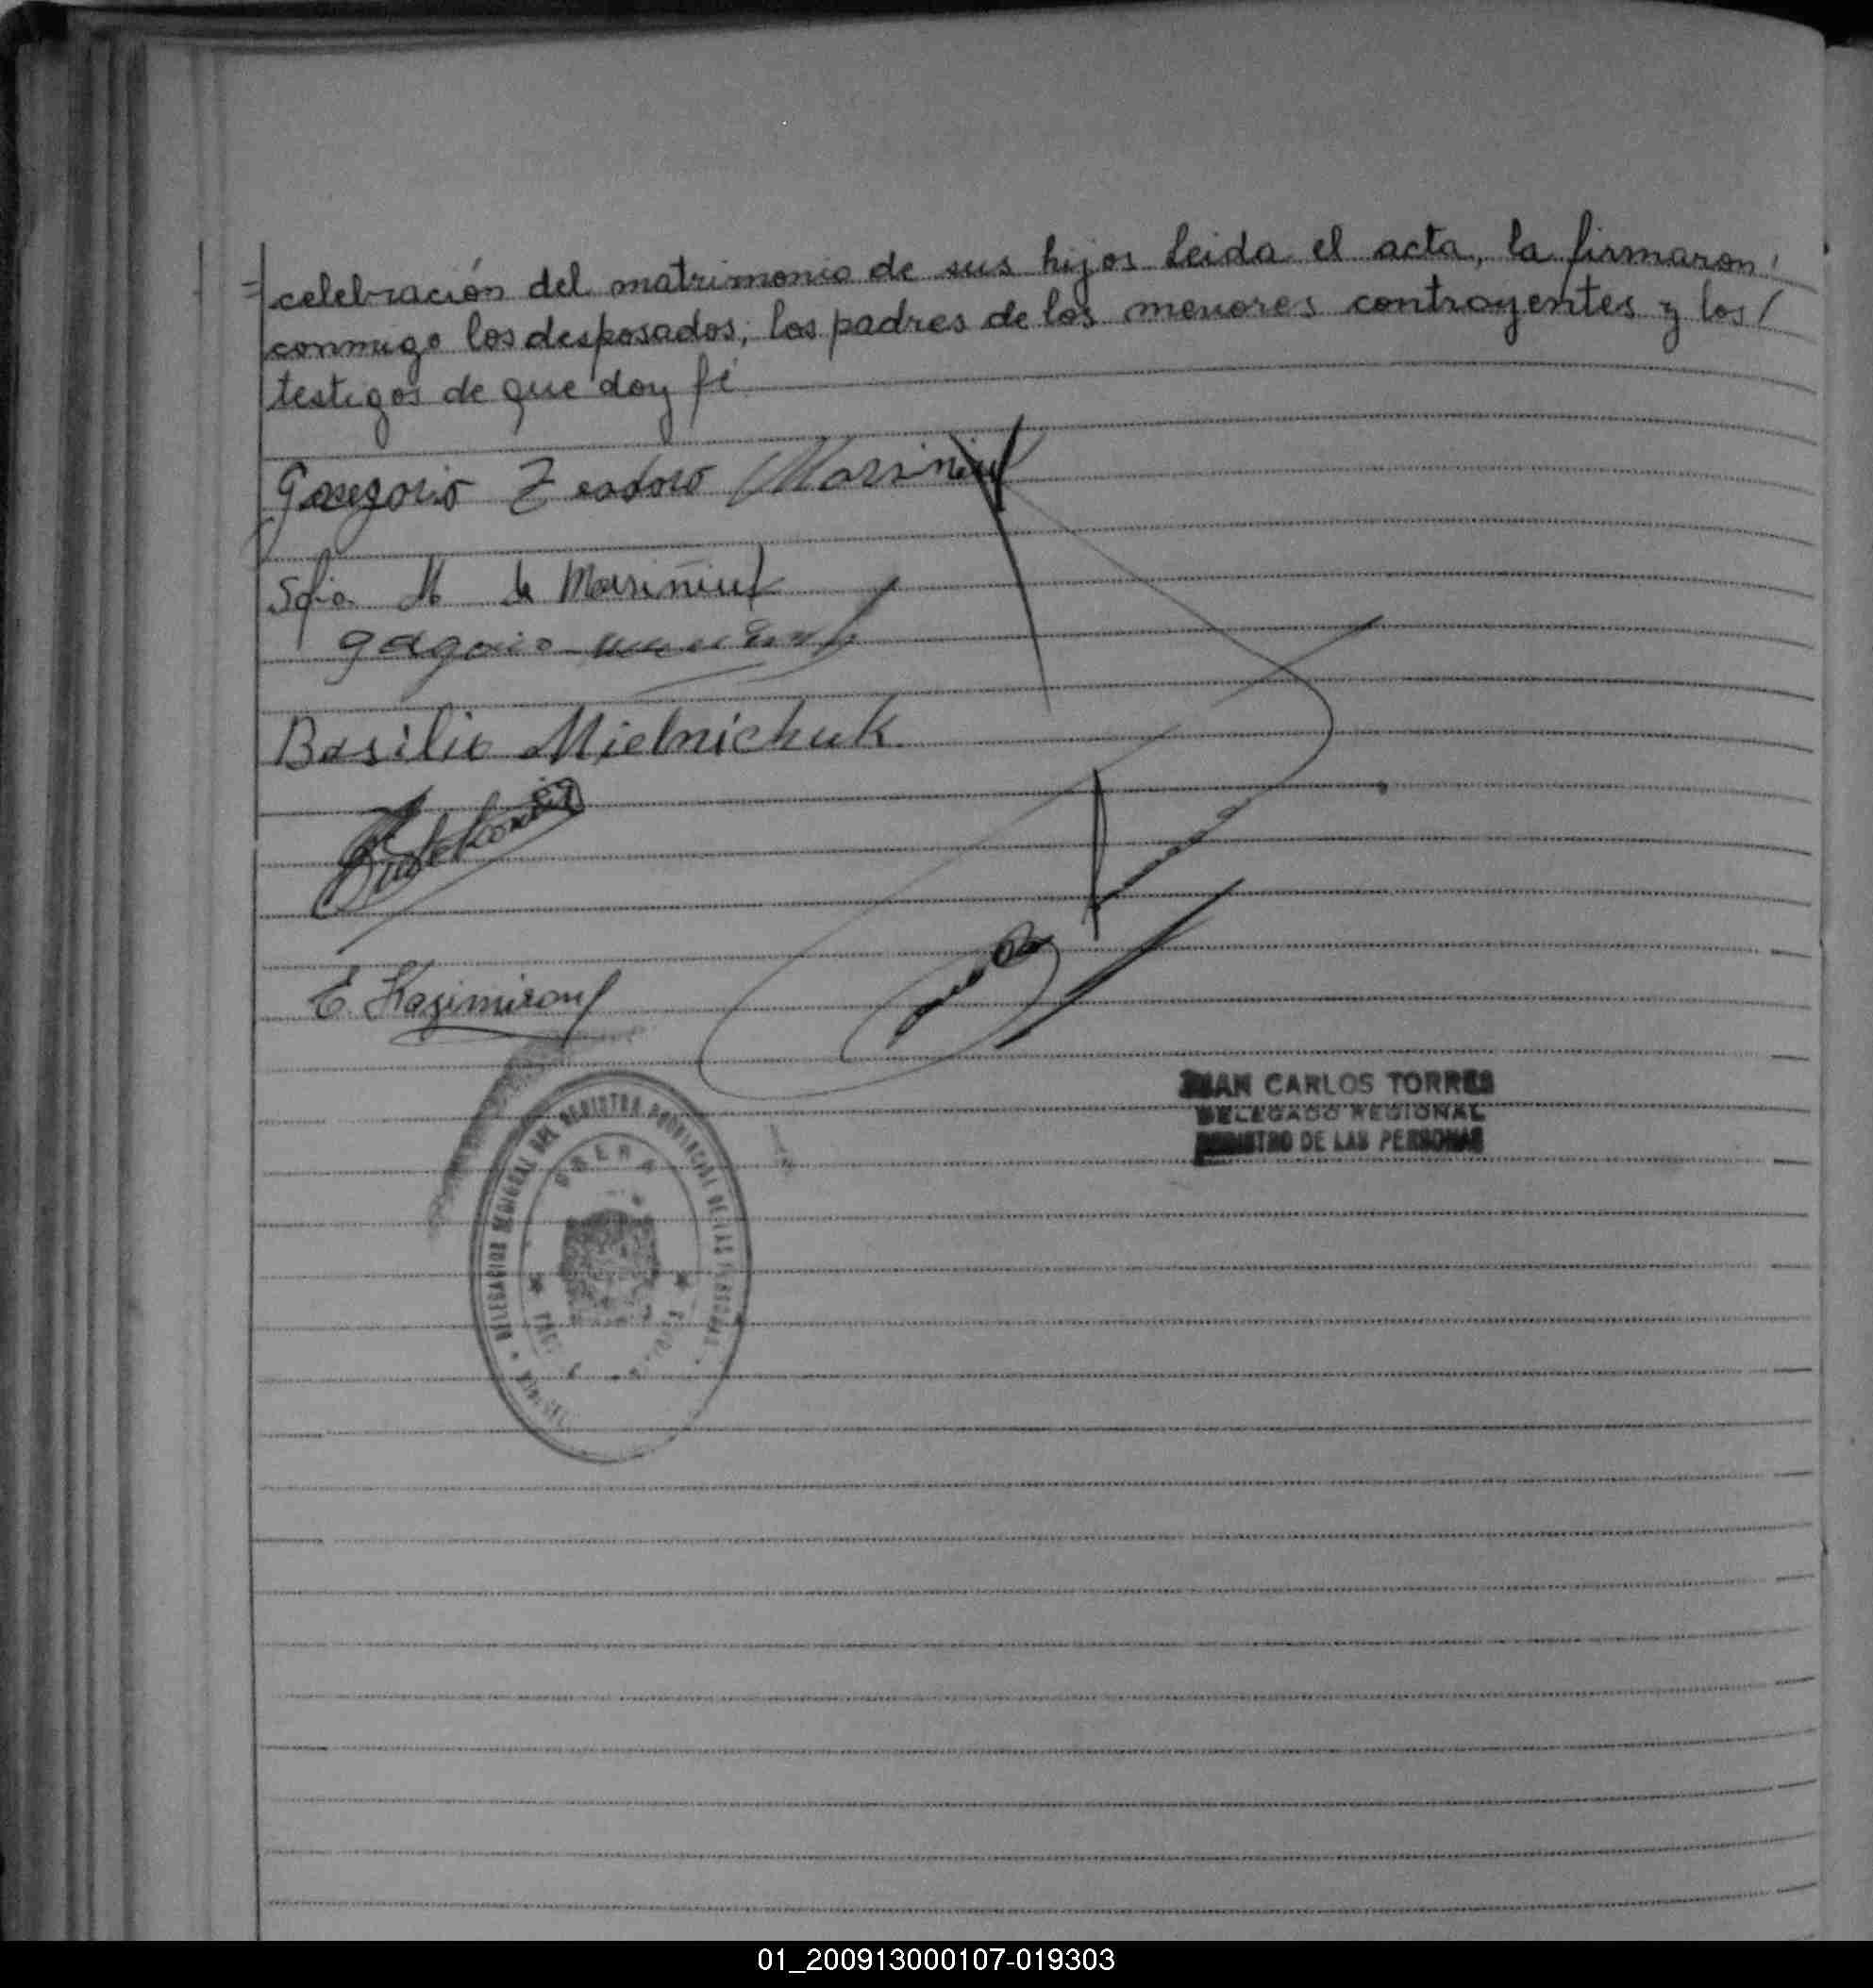 celebración del matrimonio de sus hijos Leida el acta, la firmaron
conmigo los desposados, los padres de los menores contrayentes y los/
testigos de que doy fé
Gregorio Teodoro
Sofia M de
Basilio Mielnichuk
E.
JUAN CARLOS TORRES
DELEGADO REGIONAL
REGISTRO DE LAS PERSONAS
DELEGACION REGIONAL DEL REGISTRO PROVINCIAL DE LAS PERSONAS
OBERA
01_200913000107-019303